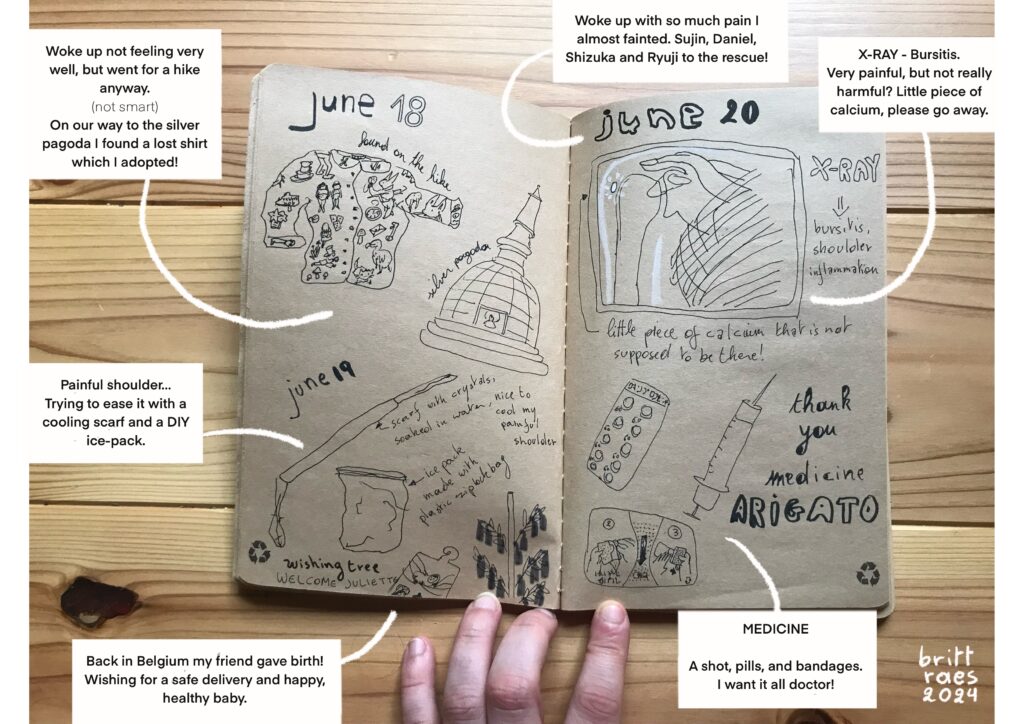 Woke up not feeling very
well, but went for a hike
anyway.
(not smart)
On our way to the silver
pagoda I found a lost shirt
which I adopted!
Woke up with so much pain I
almost fainted. Sujin, Daniel,
Shizuka and Ryuji to the rescue!
X-RAY - Bursitis.
Very painful, but not really
harmful? Little piece of
calcium, please go away.
june 18
found on the hike
silver pagoda
june 19
scarf with crystals,
soaked in water,
nice to
cool my
painful
shoulder
ice pack
made with
plastic ziplockbag
wishing tree
WELCOME JULIETTE
june 20
X-RAY
bursitis,
shoulder
inflammation
little piece of calcium that is not
supposed to be there!
thank
you
medicine
ARIGATO
2
3
Painful shoulder...
Trying to ease it with a
cooling scarf and a DIY
ice-pack.
Back in Belgium my friend gave birth!
Wishing for a safe delivery and happy,
healthy baby.
MEDICINE
A shot, pills, and bandages.
I want it all doctor!
britt
raes
2024